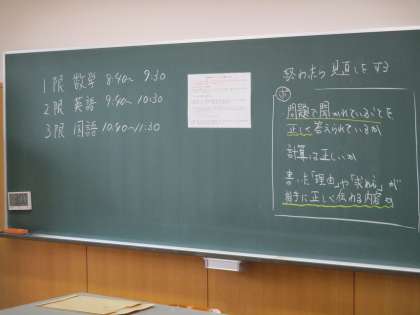 1限 数学 8:40〜 9:30
2限 英語 9:40〜10:30
3限 国語 10:40〜11:30
終わったら見直しをする
問題で聞かれていることを
正しく答えられているか
計算は正しいか
書いた「理由」や「求め方」が
相手に正しく伝わる内容か